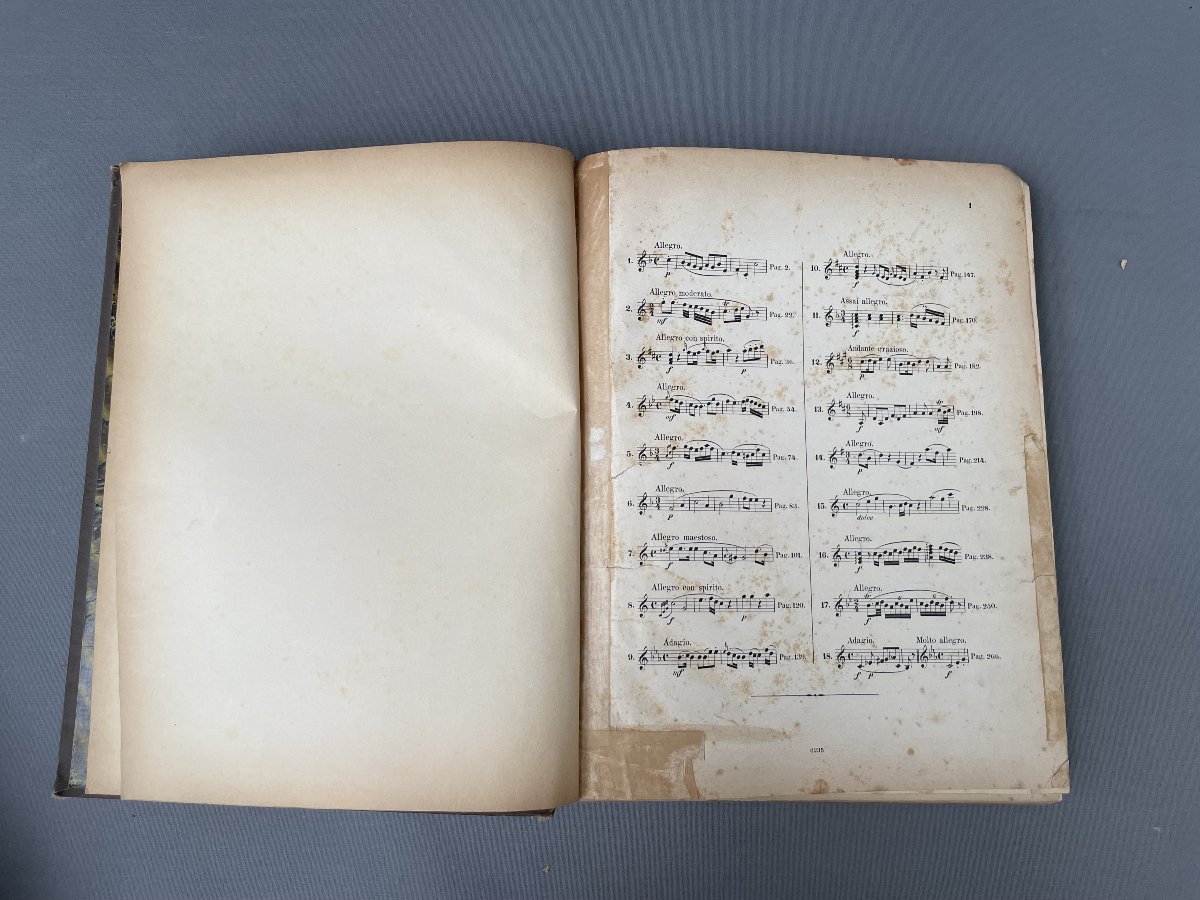 1
Allegro.
1. p Pag. 2.
Allegro moderato.
2. mf Pag. 22.
Allegro con spirito.
3. f p Pag. 36.
Allegro.
4. mf Pag. 54.
Allegro.
5. f Pag. 74.
Allegro.
6. p Pag. 83.
Allegro maestoso.
7. f Pag. 101.
Allegro con spirito.
8. f p Pag. 120.
Adagio.
9. mf Pag. 139.
Allegro.
10. f Pag. 147.
Assai allegro.
11. f Pag. 170.
Andante grazioso.
12. p Pag. 182.
Allegro.
13. f mf Pag. 198.
Allegro.
14. p Pag. 214.
Allegro.
15. dolce Pag. 228.
Allegro.
16. f Pag. 238.
Allegro.
17. f Pag. 250.
Adagio. Molto allegro.
18. f p f Pag. 266.